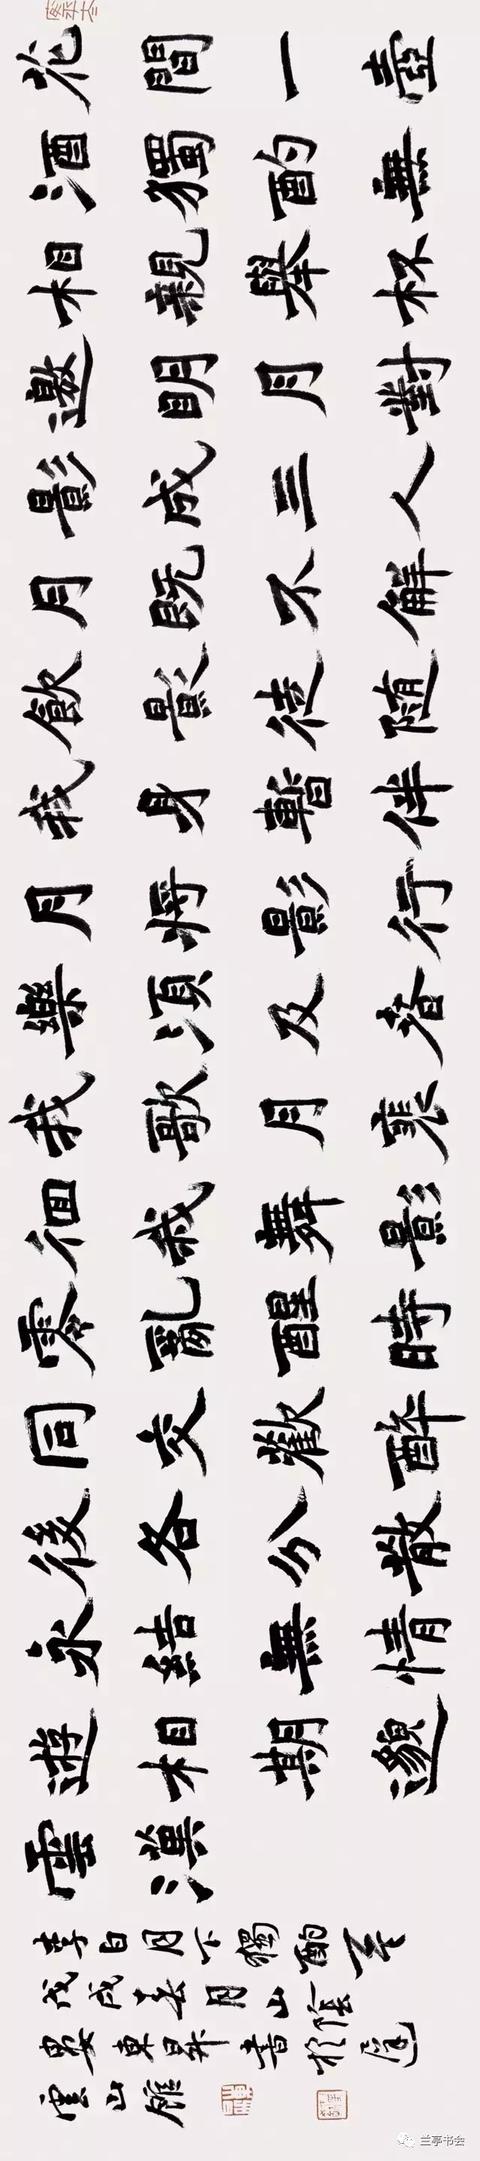 花間一壺
酒獨酌無
相親舉杯
邀明月對
影成三人
月既不解
飲影徒随
我身暫伴
月将影行
樂須及春
我歌月裴
徊我舞影
零亂醒時
同交歡醉
後各分散
永結無情
遊相期邈
雲漢
李白月下獨酌
戊戌春月山陰
婁東昇書於
雲山館
兰亭书会